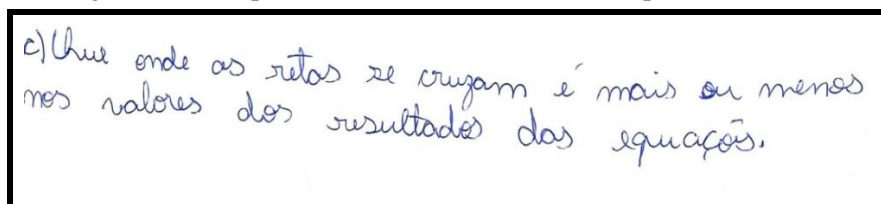 c) Que onde as retas se cruzam é mais ou menos
nos valores dos resultados das equações.